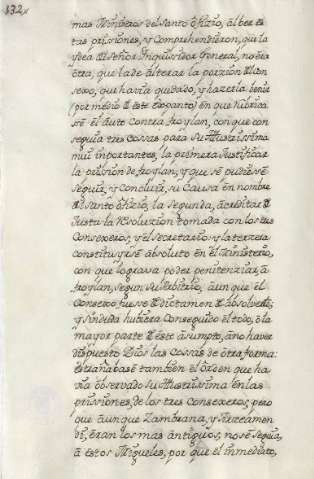 132
mas Miniſtros del Santo offizio, al ver es
tas prissiones, y Comprehendieron, que la
ydea del Señor Inquisidor General, no era
otra, que la de alterar la porzion del Con
sexo, que havia quedado, y hazerla benir
(por medio de este Expanto) en que rubrica
sè el Auto Contra froylan, con que con
seguia tres Cossas para Su Illustrissima
mui importantes, la primera Justificar
la prission de froylan, y que se pudiesse
seguir, y Concluir, su Causa en nombre
del Santo offizio, la segunda, acreditar de
Justa la resoluzion tomada con los tres
Consexeros, y el Secretario, y la terzera
constituyrsè absoluto en el Ministerio,
con que lograva poder penitenziar, à
froylan, segun su arbitrio, aun que el
Consexo, fuesse de dictamen de absolverle,
y sin duda hubiera Conseguido el todo, ò la
mayor parte de este assumpto, à no haver
dispuesto Dios las cossas de otra forma:
estrañabase tambien el orden que ha
via observado Su Illustrissima en las
prissiones, de los tres Consexeros, pero
que aunque Zambrana, y Arzeamen
di, eran los mas antiguos, no se seguia,
à estos Migueles, por que el inmediato,